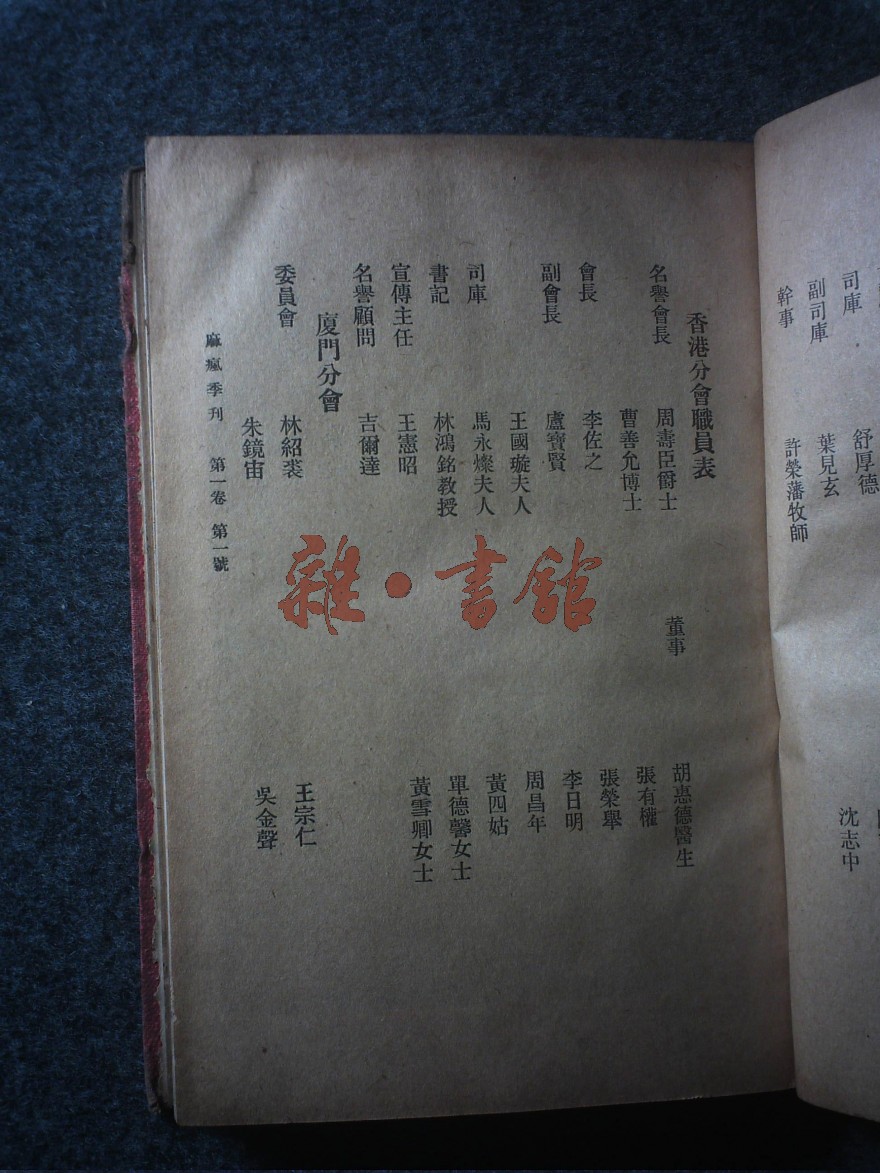 幹事
許榮藩牧師
副司庫
葉見玄
司庫
舒厚德
沈志中
香港分會職員表
名譽會長
周壽臣爵士
曹善允博士
會長
李佐之
副會長
盧寶賢
王國璇夫人
司庫
馬永燦夫人
書記
林鴻銘教授
宣傳主任
王憲昭
名譽顧問
吉爾達
董事
胡惠德醫生
張有權
張榮舉
李日明
周昌年
黃四姑
單德馨女士
黃雪卿女士
廈門分會
委員會
林紹裘
朱鏡宙
王宗仁
吳金聲
麻瘋季刊 第一卷 第一號
雜·書館